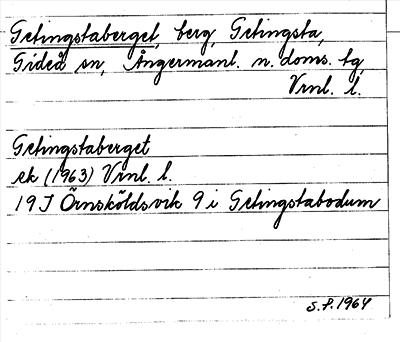 Getingstaberget, berg, Getingsta,
Gideå sn, Ångermanl. n. doms. tg,
Vrnl. l.
Getingstaberget
ek (1963) Vrnl. l.
19 J Örnsköldsvik 9 i Getingstabodum
S.P. 1964